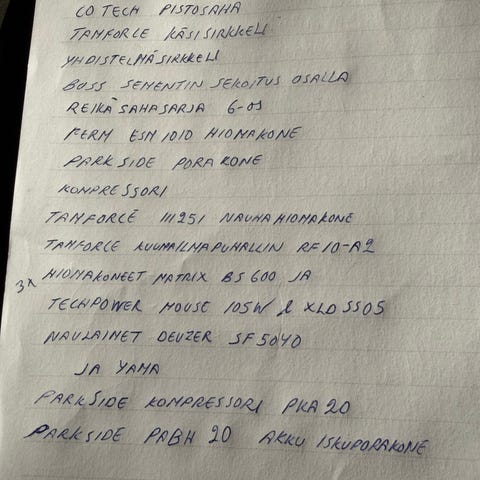 CO TECH PISTOSAHA
TAMFORCE KÄSISIRKKELI
YHDISTELMÄSIRKKELI
BOSS SEMENTIN SEKOITUS OSALLA
REIKÄSAHASARJA 6-OS
FERM ESM1010 HIOMAKONE
PARKSIDE PORAKONE
KOMPRESSORI
TAMFORCE 111251 NAUHAHIOMAKONE
TAMFORCE KUUMAILMAPUHALLIN RF10-A2
3X HIOMAKONEET MATRIX BS600 JA
TECHPOWER MOUSE 105W & XLD SS05
NAULAIMET DEUZER SF5040
JA YAMA
PARKSIDE KOMPRESSORI PKA20
PARKSIDE PABH 20 AKKU ISKUPORAKONE